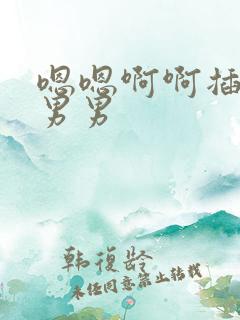 嗯嗯啊啊插
男男
韩復龄
未经同意禁止转载